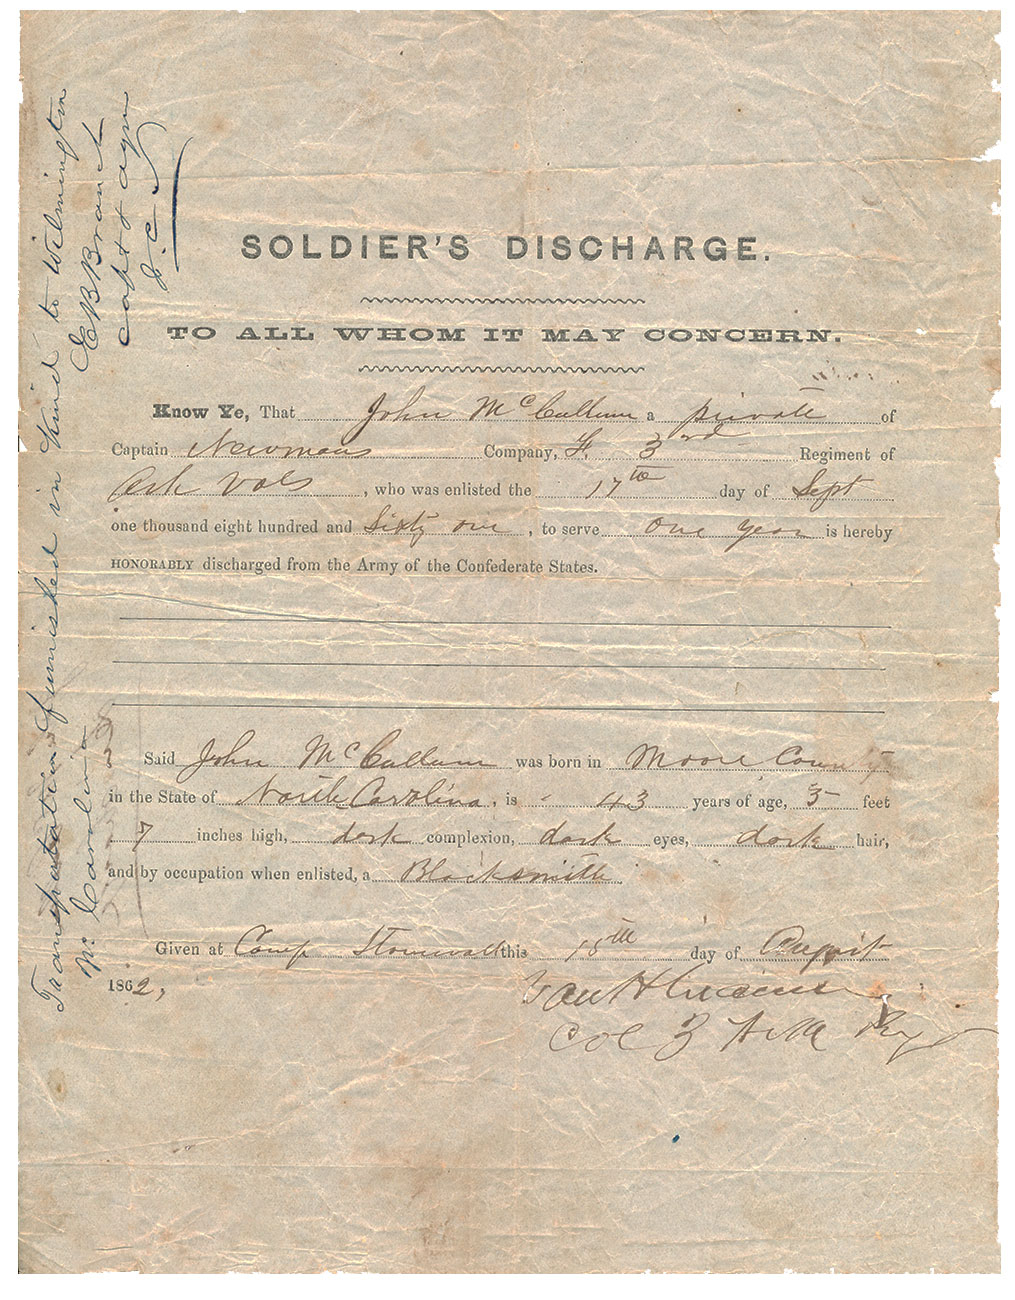 SOLDIER'S DISCHARGE.
TO ALL WHOM IT MAY CONCERN.
Know Ye, That John McCallum a private of
Captain Newmans Company, F, 3rd Regiment of
Ark Vols, who was enlisted the 17th day of Sept
one thousand eight hundred and Sixty one, to serve one year is hereby
HONORABLY discharged from the Army of the Confederate States.
Said John McCallum was born in Moore County
in the State of North Carolina, is 43 years of age, 5 feet
7 inches high, dark complexion, dark eyes, dark hair,
and by occupation when enlisted, a Blacksmith
Given at Camp Stonewall this 18th day of August
1862,
Col 3 Ark
Transportation furnished in kind to Wilmington
N. Carolina
E B Branch
Capt &